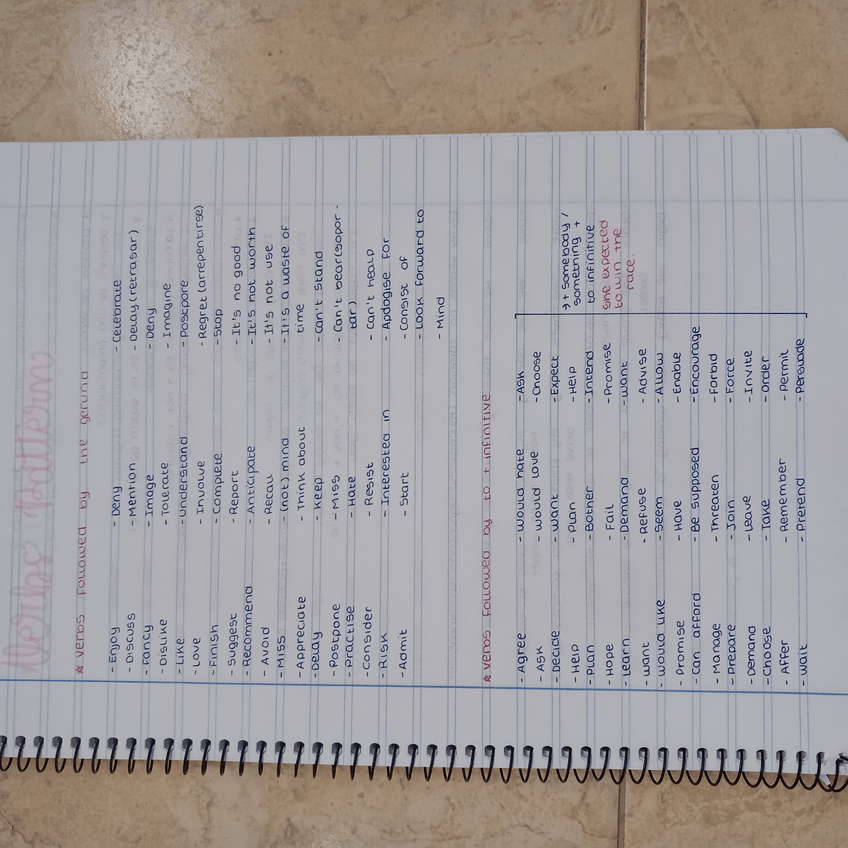 Verbs Pattern
* verbs followed by the gerund
- Enjoy
- Discuss
- Fancy
- Dislike
- Like
- Love
- Finish
- Suggest
- Recommend
- Avoid
- Miss
- Appreciate
- Delay
- Postpone
- Practise
- Consider
- Risk
- Admit
- Deny
- Mention
- Image
- Tolerate
- Understand
- Involve
- Complete
- Report
- Anticipate
- Recall
- (not) mind
- Think about
- Keep
- Miss
- Hate
- Resist
- Interested in
- Start
- Celebrate
- Delay (retrasar)
- Deny
- Imagine
- Postpore
- Regret (arrepentirse)
- Stop
- It's no good
- It's not worth
- It's not use
- It's a waste of
time
- Can't stand
- Can't bear (sopor -
tar)
- Can't healp
- Apdogise for
- Consist of
- Look forward to
- Mind
* verbs followed by to + infinitive
- Agree
- Ask
- Decide
- Help
- Plan
- Hope
- Learn
- want
- would like
- Promise
- Can afford
- Manage
- Prepare
- Demand
- Choose
- Affer
- wait
- would hate
- would love
- want
- Plan
- Bother
- Fail
- Demand
- Refuse
- Seem
- Have
- Be supposed
- Threaten
- Join
- Leave
- Take
- Remember
- Pretend
- Ask
- Choose
- Expect
- Help
- Intend
- Promise
- want
- Advise
- Allow
- Enable
- Encourage
- Forbid
- Force
- Invite
- Order
- Permit
- Persuade
→ + somebody /
something +
to infinitive
She expected
to win the
race.